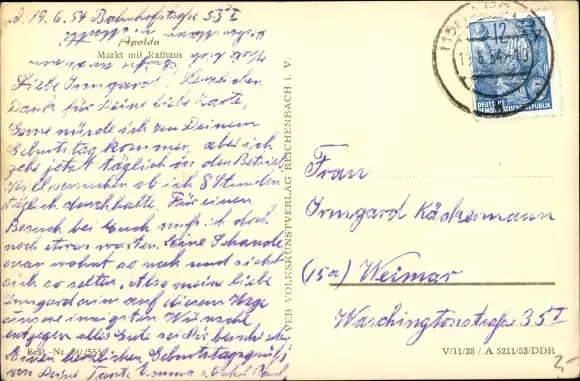 d. 19.6.54 Bahnhofstraße 53 I
Apolda
Markt mit Rathaus
Liebe Irmgard! Herzlichen
Dank für Deine liebe Karte,
Gerne würde ich zu Deinem
Geburtstag kommen, aber ich
gehe jetzt täglich in den Betrieb
Will versuchen ob ich 8 Stunden
täglich durchhalte. Für einen
Besuch bei Euch muß ich doch
noch etwas warten. Eine Schande
man wohnt so nah und sieht
sich so selten. Also meine liebe
Irmgard nim auf diesem Wege
meine innigsten Wünsche
entgegen alles Gute sei Dir beschieden
Einen herzlichen Geburtstagsgruß
von Deine Tante Emma u Onkel Paul
Best.-Nr. 51/3555
VEB VOLKSKUNSTVERLAG REICHENBACH I. V.
DEUTSCHE
DEMOKRATISCHE REPUBLIK
Frau
Irmgard Käckermann
(15a) Weimar
Waschingtonstraße 35 I
V/11/28 / A 5211/53/DDR